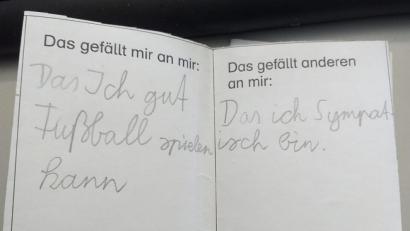 Das gefällt mir an mir:
Das Ich gut
Fußball spielen
kann
Das gefällt anderen
an mir:
Das ich Sympat
isch bin.